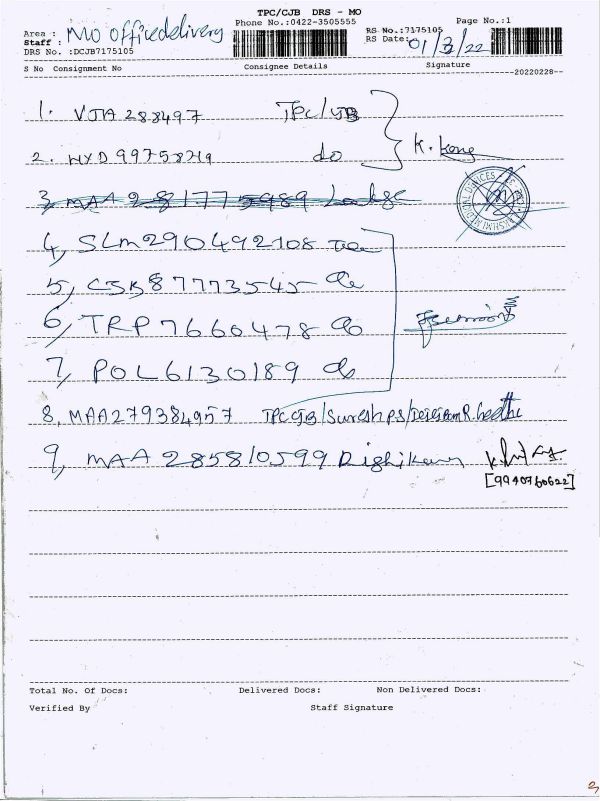 TPC/CJB DRS - MO
Phone No.:0422-3505555
Page No.:1
Area : Mo office delivery
Staff :
DRS No. :DCJB7175105
RS No.:7175105
RS Date: 01/3/22
S No Consignment No Consignee Details Signature
20220228
1. VJA 288497 TPC/CJB
2. HYD 99758719 do K.
3, MAA 281775989
4, SLM290492108
5, CJB87773545 do
6, TRP 7660478 do
7, POL6130189 do
8, MAA279384957 TPC CJB/Suresh P.S/
9, MAA 285810599 Rishi
[9940760622]
Total No. Of Docs: Delivered Docs: Non Delivered Docs:
Verified By Staff Signature